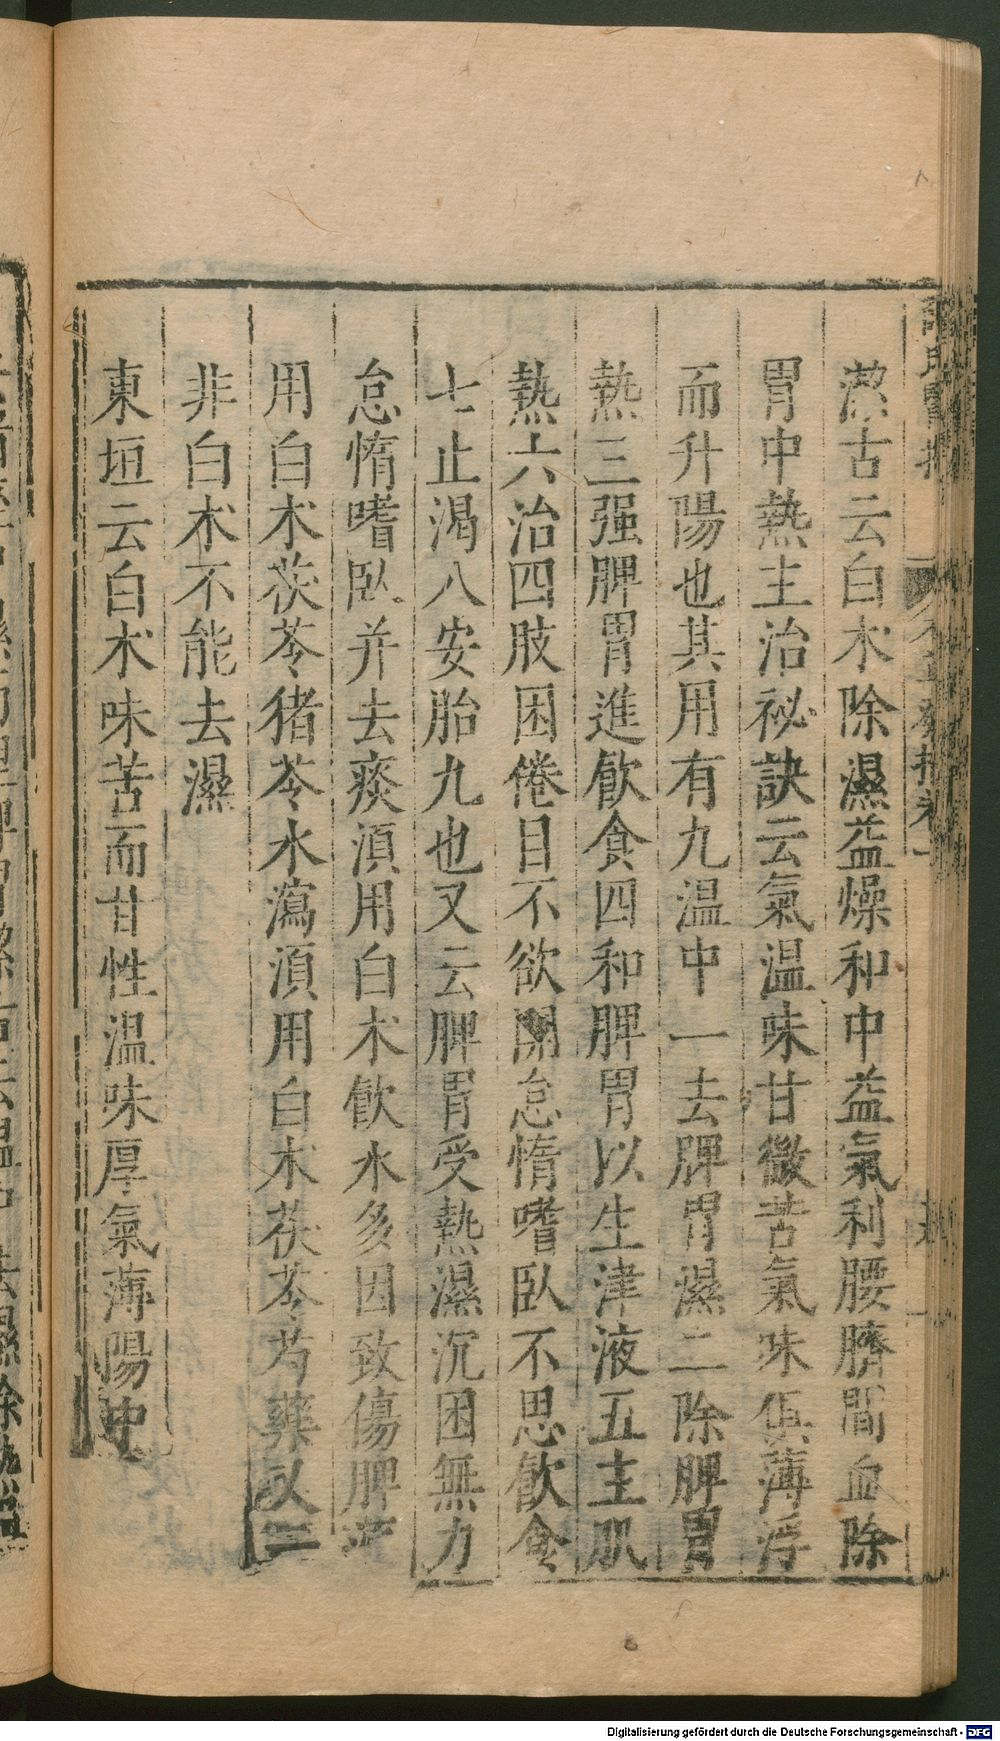 潔古云白朮除濕益燥和中益氣利腰臍間血除
胃中熱主治祕訣云氣温味甘微苦氣味俱薄浮
而升陽也其用有九温中一去脾胃濕二除脾胃
熱三强脾胃進飲食四和脾胃以生津液五主肌
熱六治四肢困倦目不欲開怠惰嗜臥不思飲食
七止渴八安胎九也又云脾胃受熱濕沉困無力
怠惰嗜臥并去痰湏用白朮飲水多因致傷脾
用白朮茯苓猪苓水瀉湏用白朮茯苓芍藥又云
非白朮不能去濕
東垣云白朮味苦而甘性温味厚氣薄陽中
Digitalisierung gefördert durch die Deutsche Forschungsgemeinschaft - DFG